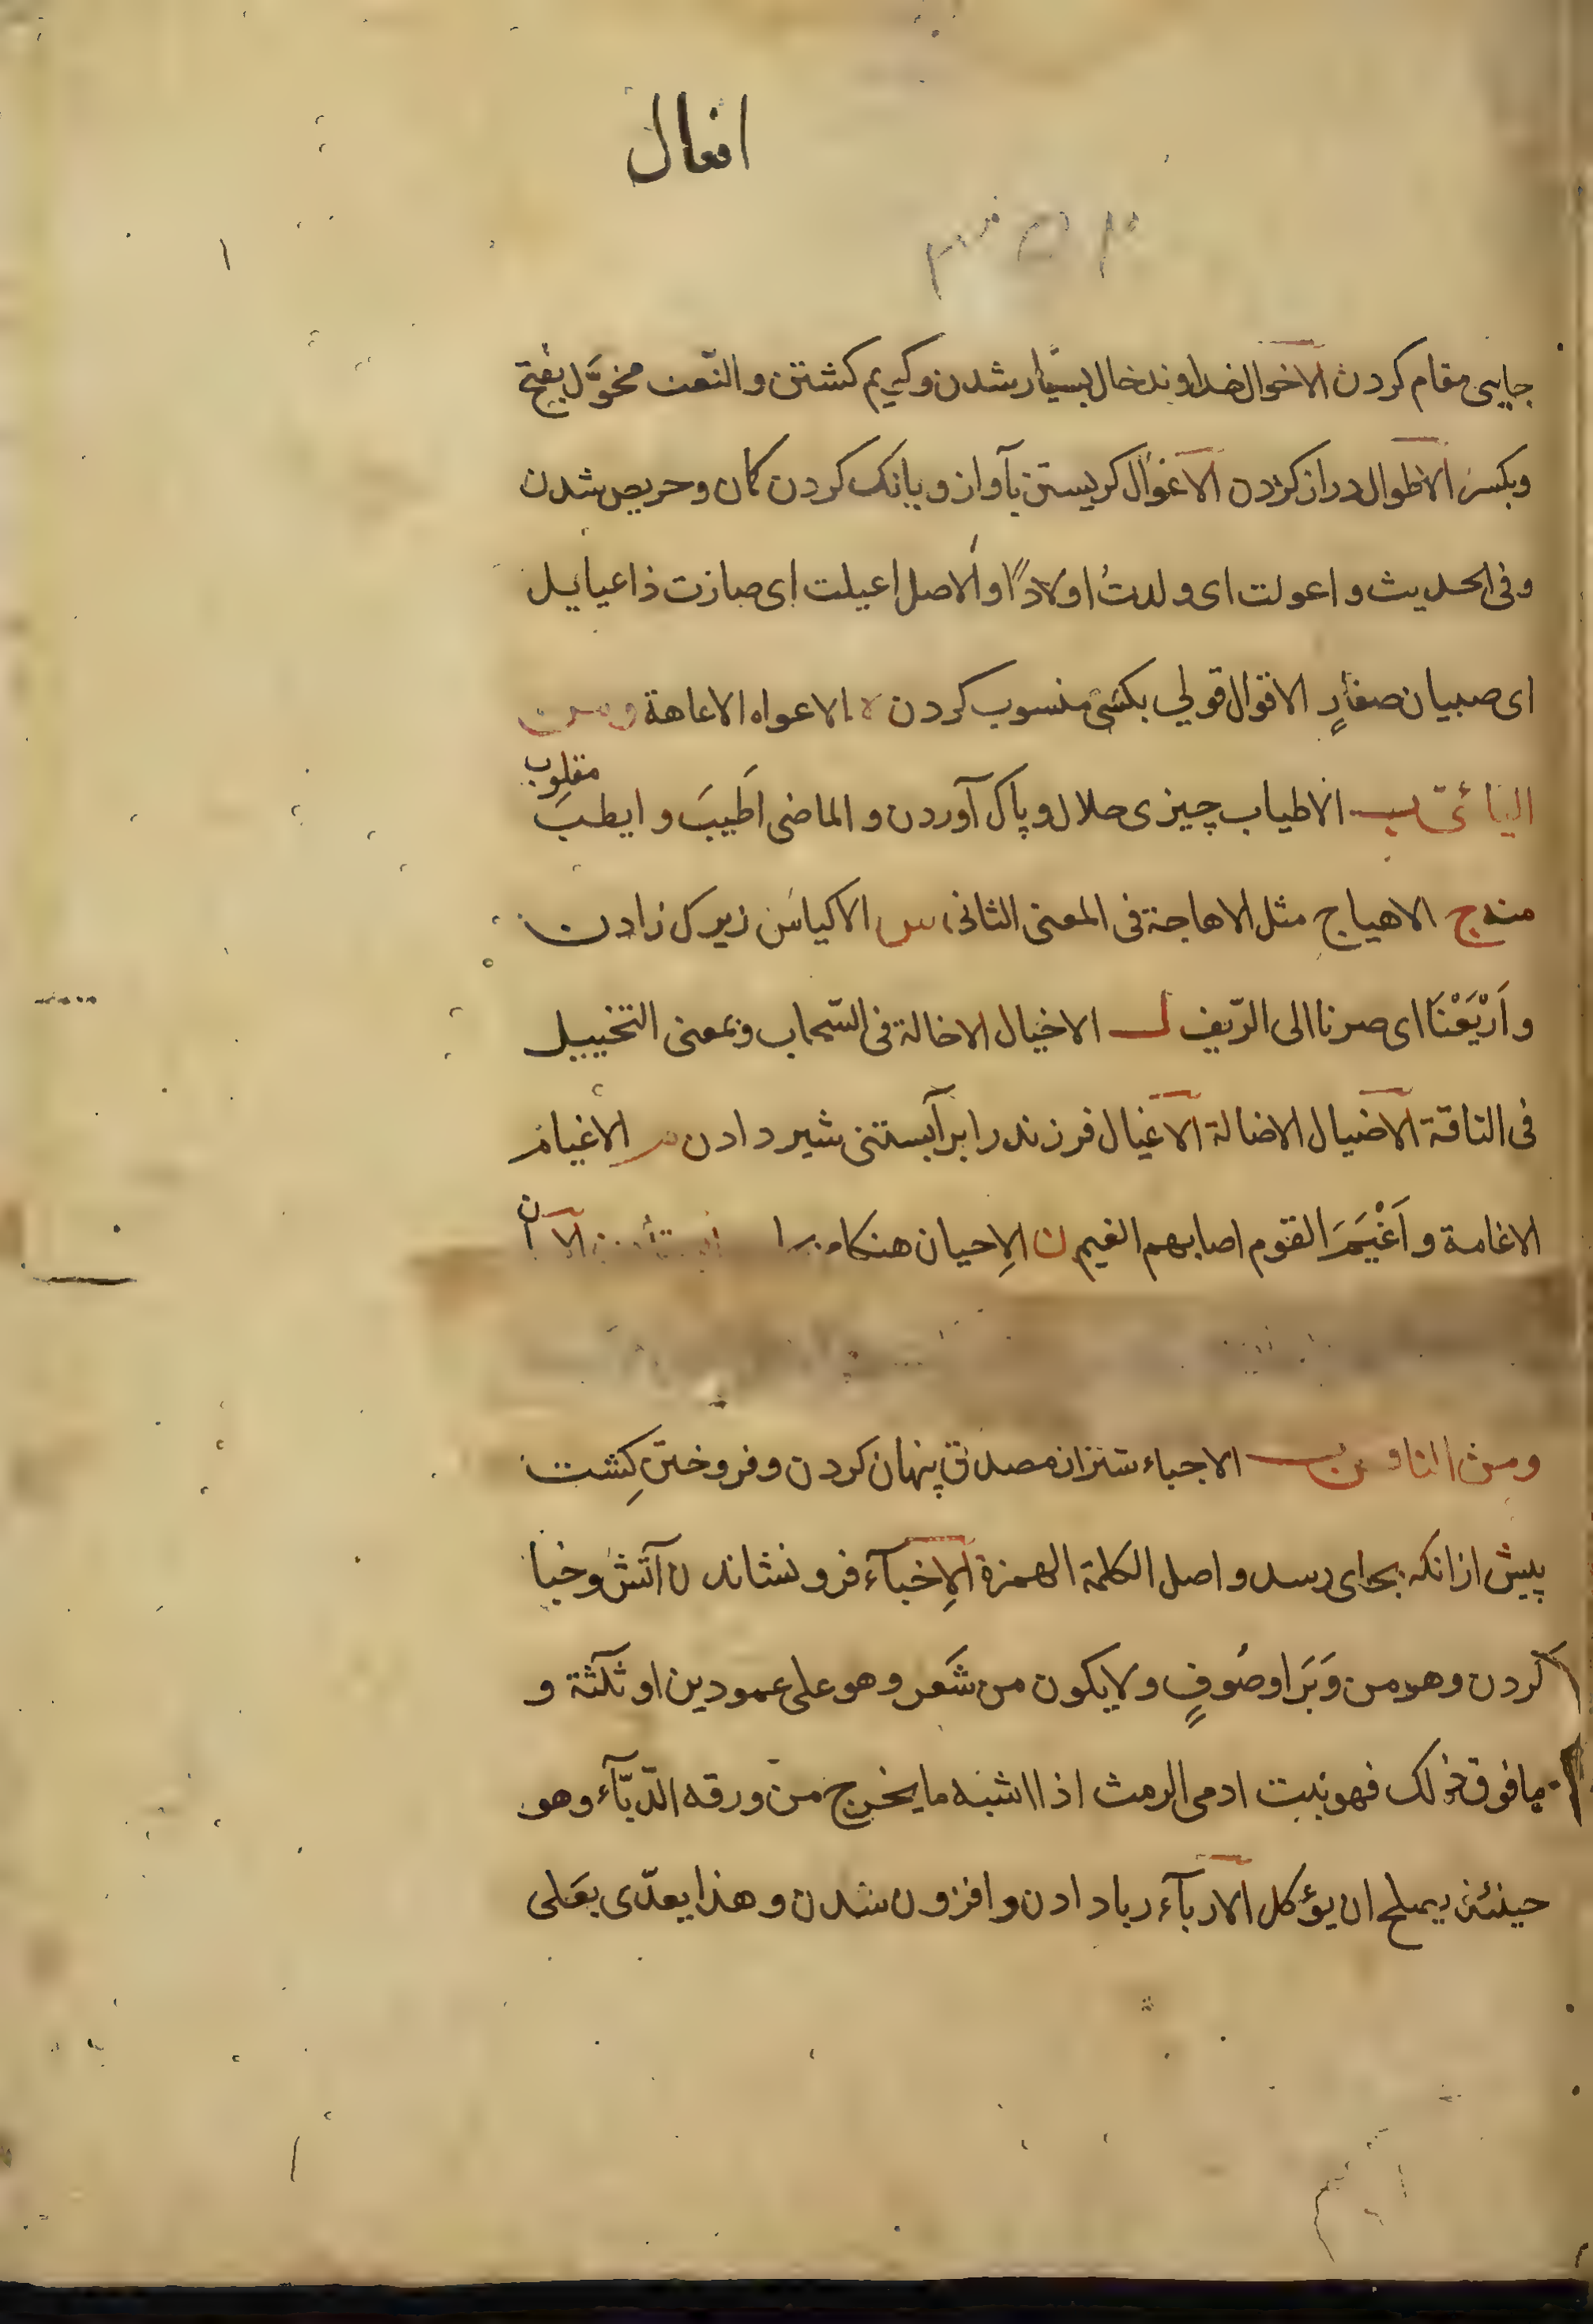 افعال
جایی مقام کردن الاخوال خداوند خال بسیار شدن و کریم کشتن و النّعت مخوَّل بفتح
وبکسر الاطوال دراز کردن الاعوال کریستن بآواز و بانک کردن کمان و حریص شدن
وفی الحدیث و اعولت ای ولدتُ اولادًا والاصل اعیلت ای صارت ذا عیایل
ای صبیان صغارٍ الاقوال قولی بکسی منسوب کردن ه الاعواه الاعاهة ومن
الیائیّ ب الاطیاب چیزی حلال و پاک آوردن و الماضی اَطیَبَ و ایطبَ مقلوب
منه ج الاهیاج مثل الاهاجة فی المعنی الثانی س الاکیاس زیرک زادن
و اَرْیَفْنَا ای صرنا الی الرّیف ل الاخیال الاخالة فی السّحاب وبمعنی التخییل
فی الناقة الاضیال الاضالة الاغیال فرزند را بر آبستنی شیر دادن م الاغیام
الاغامة و اَغْیَمَ القوم اصابهم الغیم ن الاِحیان هنکام
ومن الناقص ب الاجباء شتر از مصدق پنهان کردن و فروختن کِشت
پیش از انکه بجای رسد و اصل الکلمة الهمزة الاِخبآء فرو نشاندن آتش و خبا
کردن وهو من وَبَر او صُوفٍ ولا یکون من شَعر وهو علی عمودین او ثلثة و
مافوق ذلک فهو بیت ادمی الرمث اذا اشبه ما یخرج من ورقه الدّبّآء وهو
حینئذ یصلح ان یؤکل الاربآء ربا دادن و افزون شدن و هذا یعدّی بعَلی